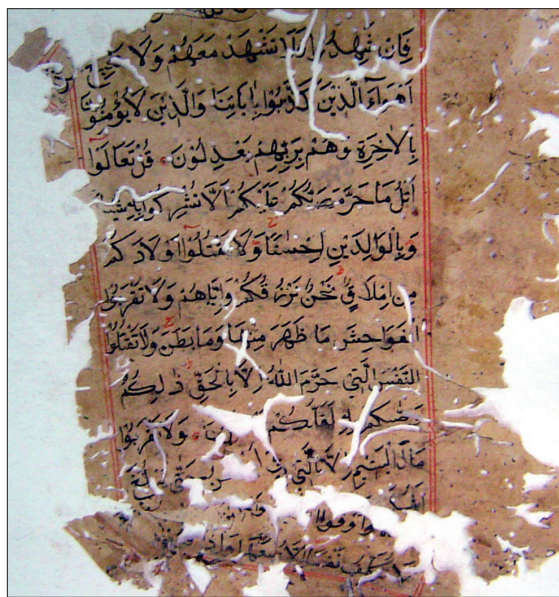 فَاِنْ شَهِدُوا فَلَا تَشْهَدْ مَعَهُمْ وَلَا
اَهْوَآءَ الَّذِيْنَ كَذَّبُوْا بِاٰيَاتِنَا وَالَّذِيْنَ لَا يُؤْمِنُوْنَ
بِالْاٰخِرَةِ وَهُمْ بِرَبِّهِمْ يَعْدِلُوْنَ قُلْ تَعَالَوْا
اَتْلُ مَا حَرَّمَ رَبُّكُمْ عَلَيْكُمْ اَلَّا تُشْرِكُوْا بِهٖ شَيْئًا
وَبِالْوَالِدَيْنِ اِحْسَانًا وَلَا تَقْتُلُوْا اَوْلَادَكُمْ
مِنْ اِمْلَاقٍ نَحْنُ نَرْزُقُكُمْ وَاِيَّاهُمْ وَلَا تَقْرَبُوا
الْفَوَاحِشَ مَا ظَهَرَ مِنْهَا وَمَا بَطَنَ وَلَا تَقْتُلُوا
النَّفْسَ الَّتِي حَرَّمَ اللّٰهُ اِلَّا بِالْحَقِّ ذٰلِكُمْ
وَصّٰكُمْ بِهٖ لَعَلَّكُمْ وَلَا تَقْرَبُوا
مَالَ الْيَتِيْمِ اِلَّا بِالَّتِي
وَاَوْفُوا
نَفْسًا اِلَّا وُسْعَهَا وَاِذَا